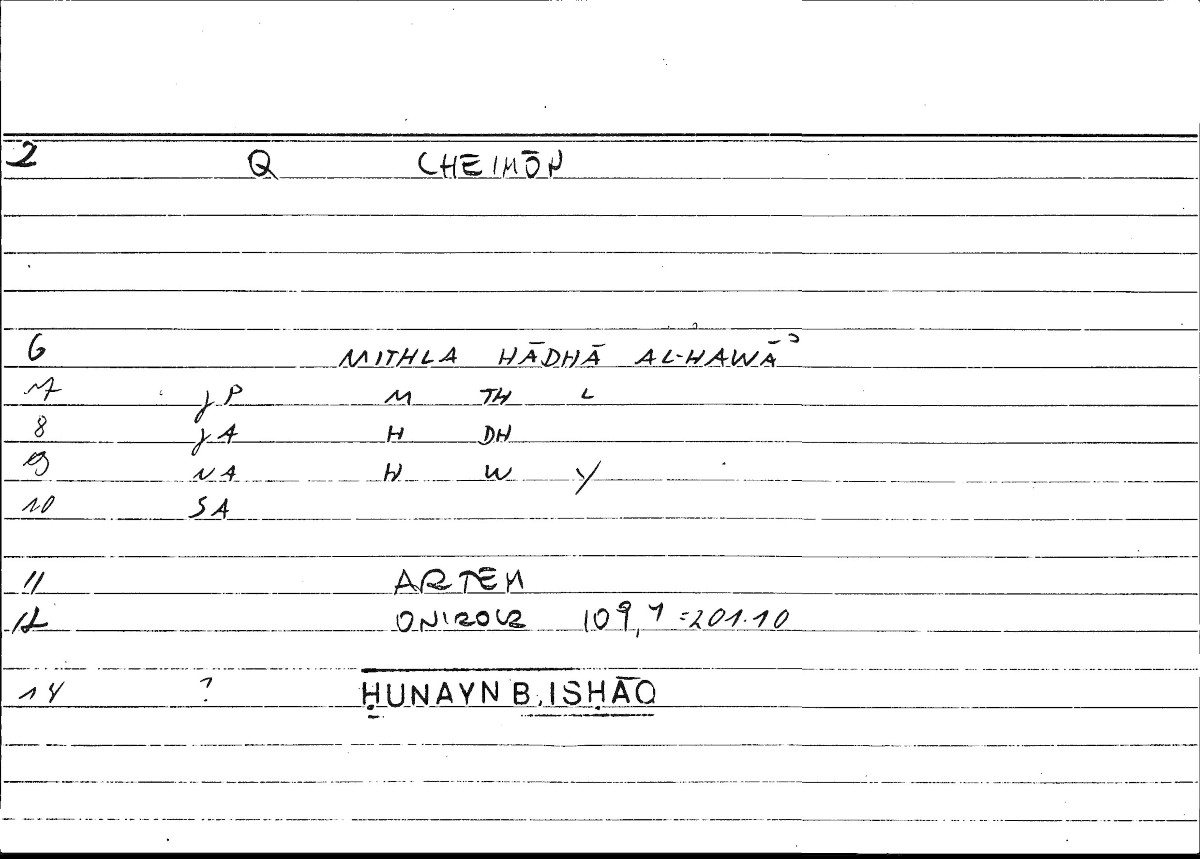 2 Q CHEIMŌN
6 MITHLA HĀDHĀ AL-HAWĀʾ
7 jP M TH L
8 jA H DH
9 NA H W Y
10 SA
11 ARTEM
12 ONIROCR 109,7=201.10
14 ? ḤUNAYN B. ISḤĀQ